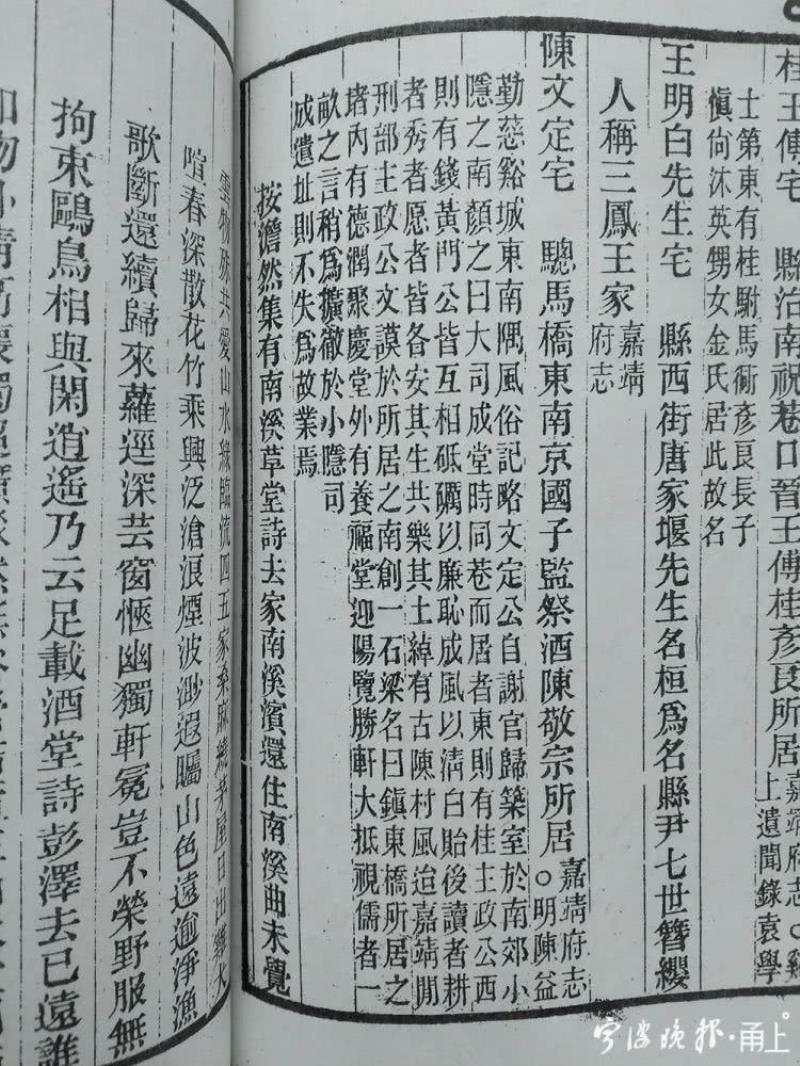 桂王傅宅　縣治南祝巷口晉王傅桂彥良所居嘉靖府志○谿
上遺聞錄袁學
士第東有桂駙馬衕彥良長子
愼尚沐英甥女金氏居此故名
王明白先生宅　縣西街唐家堰先生名桓爲名縣尹七世簪纓
人稱三鳳王家嘉靖
府志
陳文定宅　驄馬橋東南京國子監祭酒陳敬宗所居嘉靖府志
○明陳益
勤慈谿城東南隅風俗記略文定公自謝官歸築室於南郊小
隱之南顏之曰大司成堂時同巷而居者東則有桂主政公西
則有錢黃門公皆互相砥礪以廉恥成風以淸白貽後讀者耕
者秀者愿者皆各安其生共樂其土綽有古陳村風迨嘉靖間
刑部主政公文謨於所居之南創一石梁名曰鎭東橋所居之
堵內有德潤聚慶堂外有養福堂迎陽覽勝軒大抵視儒者一
畝之言稍爲擴徹於小隱司
成遺址則不失爲故業焉
按澹然集有南溪草堂詩去家南溪濱還住南溪曲未覺
雲物殊共愛山水綠臨流四五家桑麻繞茅屋日出雞犬
喧春深散花竹乘興泛滄浪煙波渺遐矚山色遠逾淨漁
歌斷還續歸來蘿逕深芸窗愜幽獨軒冕豈不榮野服無
拘束鷗鳥相與閑逍遙乃云足載酒堂詩彭澤去已遠誰